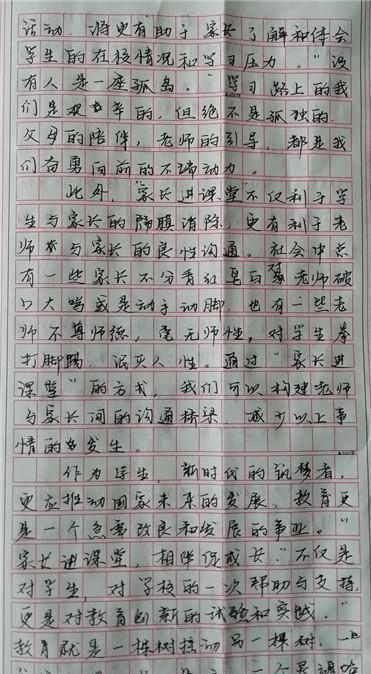 活动，将更有助于家长了解和体会
学生的在校情况和学习压力。"没
有人是一座孤岛。"学习路上的我
们是艰辛的，但绝不是孤独的，
父母的陪伴，老师的引导，都是我
们奋勇向前的不竭动力。
此外，"家长进课堂"不仅利于学
生与家长的隔膜消除，更有利于老
师与家长的良性沟通。社会中总
有一些家长不分青红皂白骂老师破
口大骂或是动手动脚，也有一些老
师不尊师德，毫无师性，对学生拳
打脚踢，泯灭人性。通过"家长进
课堂"的方式，我们可以构建老师
与家长间的沟通桥梁，减少以上事
情的发生。
作为学生，新时代的筑梦者，
更应推动国家未来的发展，教育更
是一个急需改良和发展的事业。"
家长进课堂，相伴促成长"不仅是
对学生，对学校的一次帮助与支持，
更是对教育创新的试验和实践。"
教育就是一棵树摇动另一棵树，一
一个灵魂